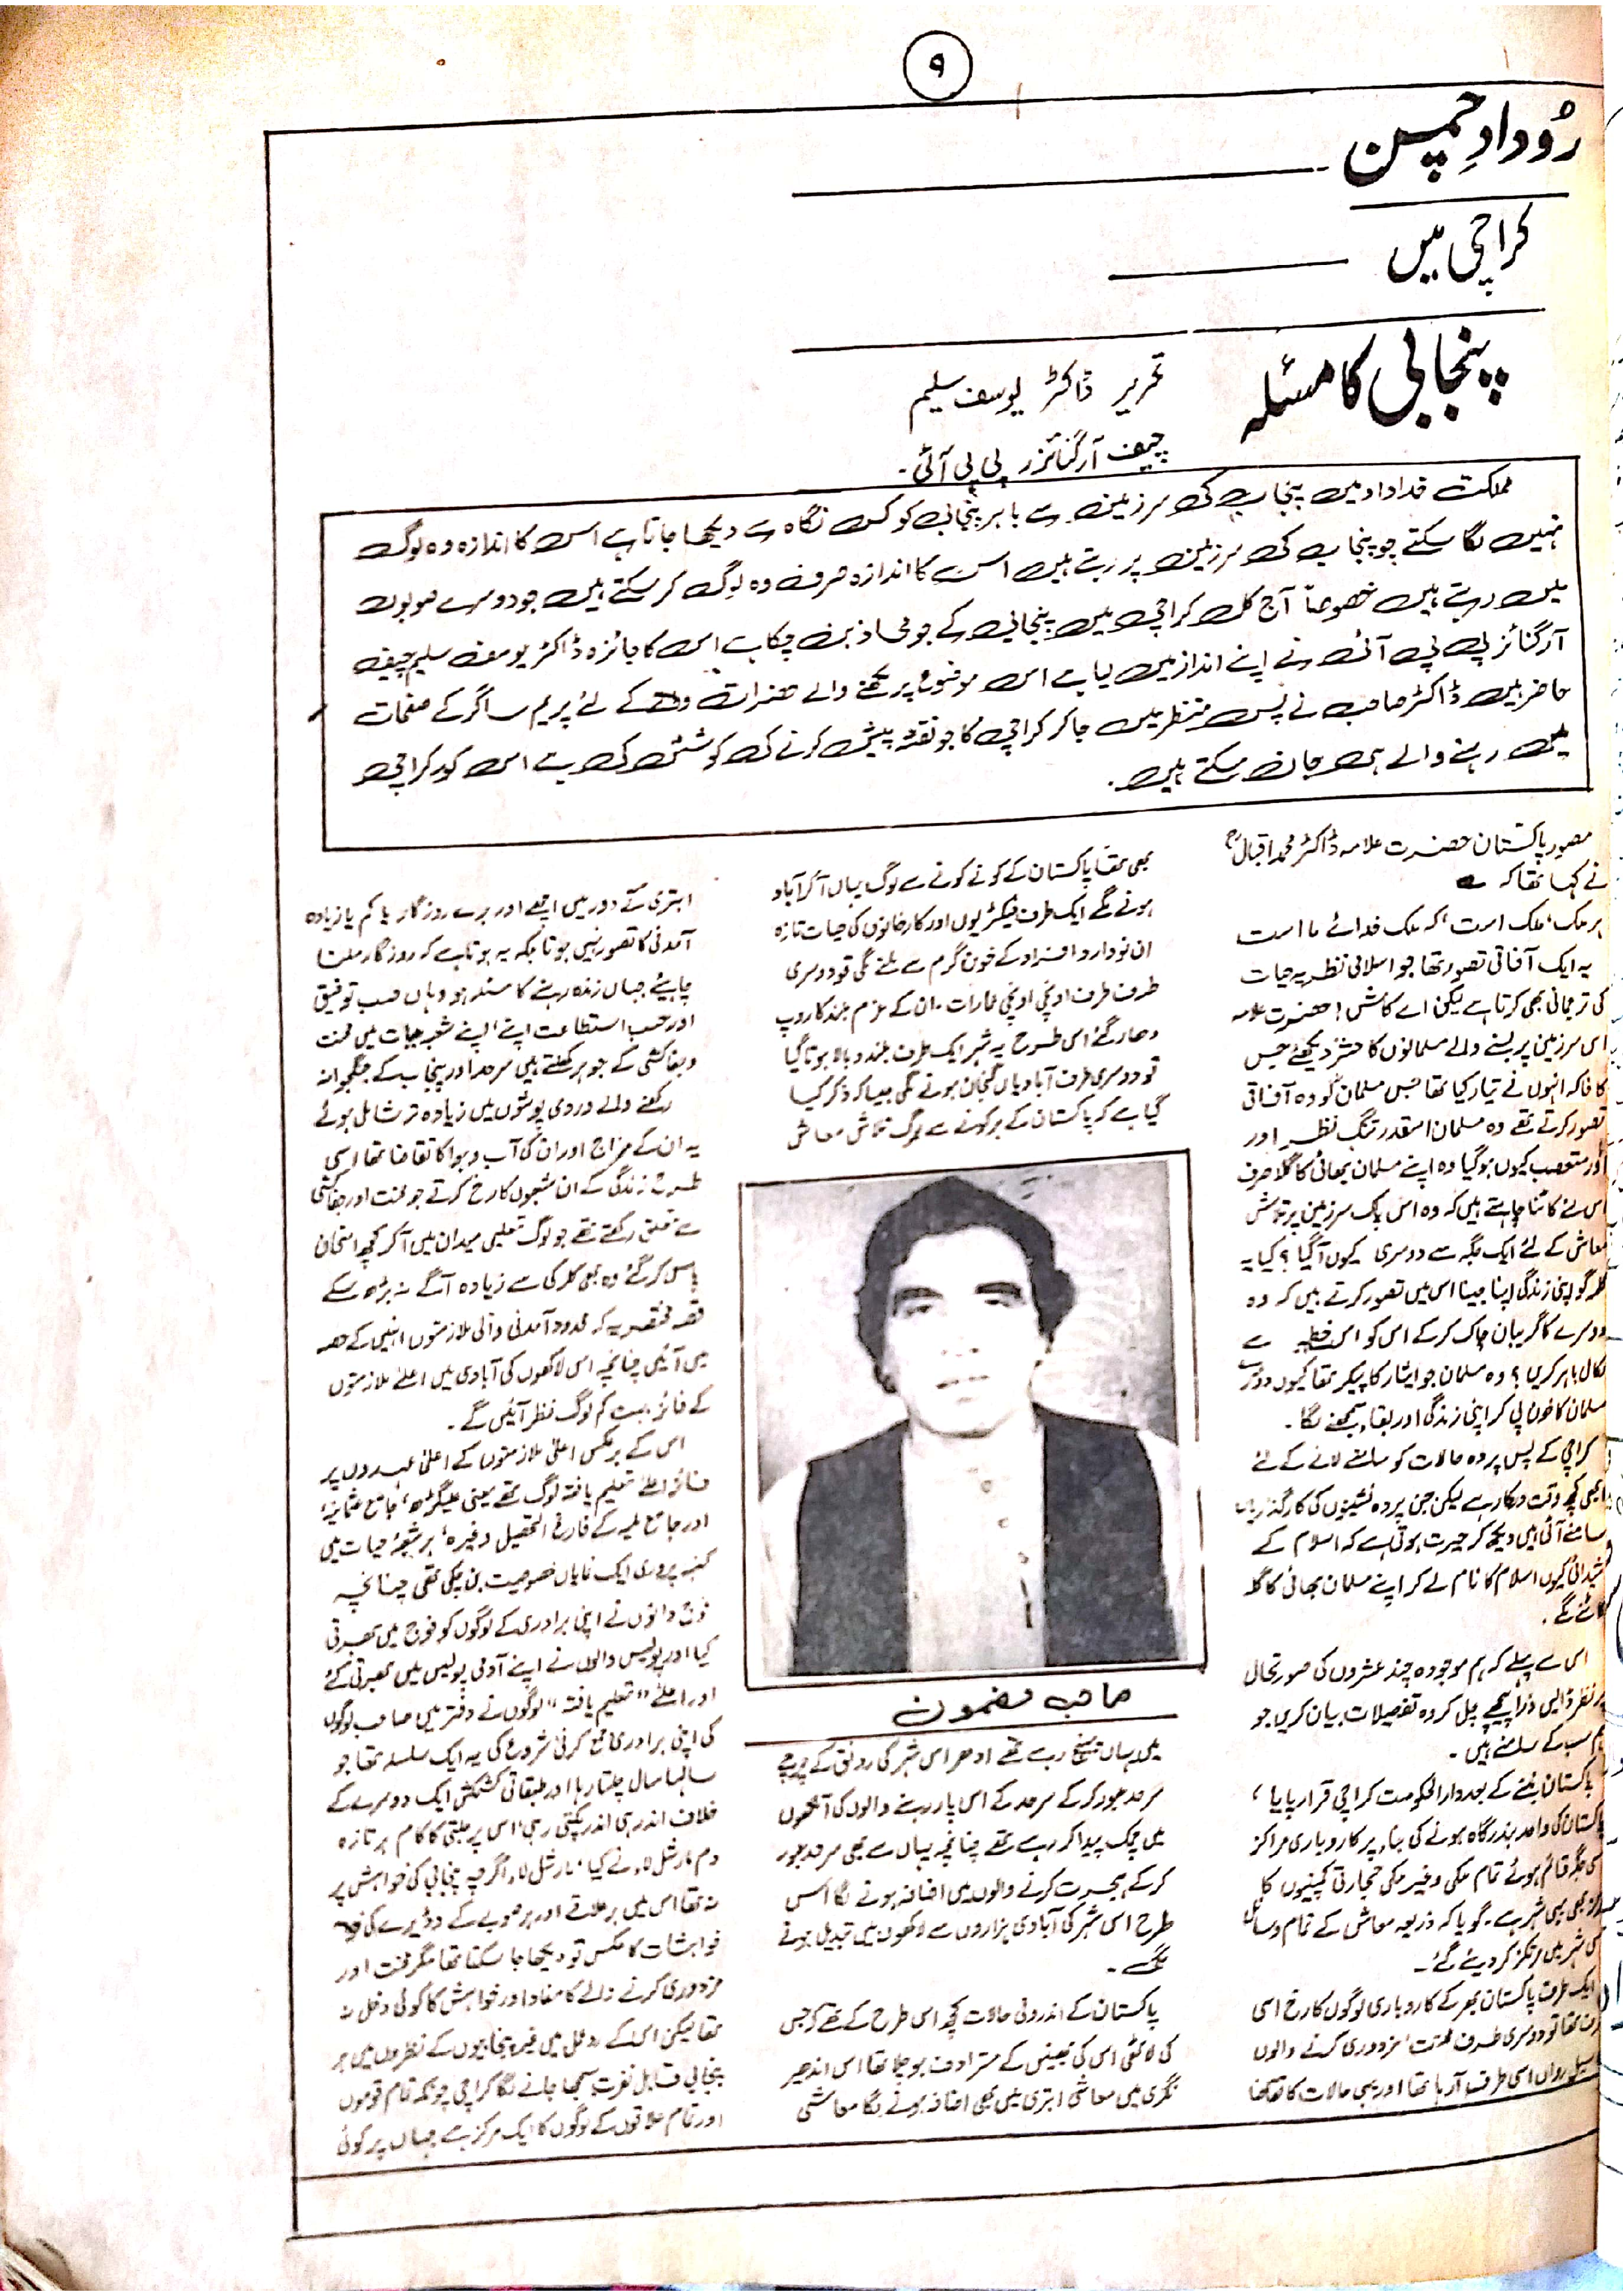 ۹
رُودادِ چمن
کراچی میں
پنجابی کا مسئلہ
تحریر ڈاکٹر یوسف سلیم
چیف آرگنائزر پی پی آئی۔
مملکت خداداد میں پنجاب کی سرزمین سے باہر پنجابی کو کس نگاہ سے دیکھا جاتا ہے اس کا اندازہ وہ لوگ
نہیں لگا سکتے جو پنجاب کی سرزمین پر رہتے ہیں اس کا اندازہ صرف وہ لوگ کر سکتے ہیں جو دوسرے صوبوں
میں رہتے ہیں خصوصاً آج کل کراچی میں پنجابی کے جو محاذ بن چکا ہے اس کا جائزہ ڈاکٹر یوسف سلیم چیف
آرگنائزر پی پی آئی نے اپنے انداز میں لیا ہے اس موضوع پر لکھنے والے حضرات کے لئے پریم ساگر کے صفحات
حاضر ہیں ڈاکٹر صاحب نے پس منظر میں جا کر کراچی کا جو نقشہ پیش کرنے کی کوشش کی ہے اس کو کراچی
میں رہنے والے ہی جان سکتے ہیں۔
مصورِ پاکستان حضرت علامہ ڈاکٹر محمد اقبالؒ
نے کہا تھا کہ
ہر ملک، ملک است، کہ ملک خدائے ما است
یہ ایک آفاقی تصور تھا جو اسلامی نظریہ حیات
کی ترجمانی بھی کرتا ہے لیکن اے کاش! حضرت علامہ
اس سرزمین پر بسنے والے مسلمانوں کا حشر دیکھتے جس
کا خاکہ انہوں نے تیار کیا تھا جس مسلمان کو وہ آفاقی
تصور کرتے تھے وہ مسلمان اسقدر تنگ نظر اور
اور متعصب کیوں ہو گیا وہ اپنے مسلمان بھائی کا گلا صرف
اس لئے کاٹنا چاہتے ہیں کہ وہ اس پاک سرزمین پر تلاش
معاش کے لئے ایک جگہ سے دوسری کیوں آ گیا؟ کیا یہ
کلمہ گو اپنی زندگی اپنا جینا اس میں تصور کرتے ہیں کہ وہ
دوسرے کا گریبان چاک کر کے اس کو اس خطہ سے
نکال باہر کریں؟ وہ مسلمان جو ایثار کا پیکر تھا کیوں دوسرے
مسلمان کا خون پی کر اپنی زندگی اور بقاء سمجھنے لگا۔
کراچی کے پس پردہ حالات کو سامنے لانے کے لئے
ابھی کچھ وقت درکار ہے لیکن جن پردہ نشینوں کی کارگذاریاں
سامنے آئی ہیں دیکھ کر حیرت ہوتی ہے کہ اسلام کے
شیدائی کیوں اسلام کا نام لے کر اپنے مسلمان بھائی کا گلہ
کاٹنے لگے۔
اس سے پہلے کہ ہم موجودہ چند عشروں کی صورتحال
پر نظر ڈالیں ذرا پیچھے چل کر وہ تفصیلات بیان کریں جو
ہم سب کے سامنے ہیں۔
پاکستان بننے کے بعد دارالحکومت کراچی قرار پایا،
پاکستان کی واحد بندرگاہ ہونے کی بناء پر کاروباری مراکز
کی جگہ قائم ہوئے تمام ملکی و غیر ملکی تجارتی کمپنیوں کا
مرکز بھی یہی شہر ہے۔ گویا کہ ذریعہ معاش کے تمام وسائل
اسی شہر میں مرتکز کر دیئے گئے۔
ایک طرف پاکستان بھر کے کاروباری لوگوں کا رخ اسی
طرف تھا تو دوسری طرف محنت، مزدوری کرنے والوں
سیلِ رواں اسی طرف آ رہا تھا اور یہی حالات کا تقاضا
بھی تھا پاکستان کے کونے کونے سے لوگ یہاں آ کر آباد
ہونے لگے ایک طرف فیکٹریوں اور کارخانوں کی حیات تازہ
ان نووارد افراد کے خون گرم سے ملنے لگی تو دوسری
طرف طرف اونچی اونچی عمارات، ان کے عزم بلند کا روپ
دھار گئے اسی طرح یہ شہر ایک طرف بلند و بالا ہوتا گیا
تو دوسری طرف آبادیاں گنجان ہونے لگی جیسا کہ ذکر کیا
گیا ہے کہ پاکستان کے ہر کونے سے لوگ تلاش معاش
صاحب مضمون
میں یہاں پہنچ رہے تھے ادھر اس شہر کی رونق کے چرچے
سرحد عبور کر کے سرحد کے اس پار رہنے والوں کی آنکھوں
میں چمک پیدا کر رہے تھے چنانچہ یہاں سے بھی سرحد عبور
کر کے ہجرت کرنے والوں میں اضافہ ہونے لگا اس
طرح اس شہر کی آبادی ہزاروں سے لاکھوں میں تبدیل ہونے
لگے۔
پاکستان کے اندرونی حالات کچھ اس طرح کے تھے کہ جس
کی لاٹھی اس کی بھینس کے مترادف ہو چلا تھا اس اندھیر
نگری میں معاشی ابتری میں بھی اضافہ ہونے لگا معاشی
ابتری کے دور میں اچھے اور برے روزگار یا کم یا زیادہ
آمدنی کا تصور نہیں ہوتا بلکہ یہ ہوتا ہے کہ روزگار ملنا
چاہیئے جہاں زندہ رہنے کا مسئلہ ہو وہاں حسب توفیق
اور حسب استطاعت اپنے، اپنے شعبہ حیات میں محنت
و جفاکشی کے جوہر کھلتے ہیں سرحد اور پنجاب کے جنگجوانہ
رکھنے والے وردی پوشوں میں زیادہ تر شامل ہوئے
یہ ان کے مزاج اور ان کی آب و ہوا کا تقاضا تھا اسی
طرح زندگی کے ان شعبوں کا رخ کرتے جو محنت اور جفاکشی
سے تعلق رکھتے تھے جو لوگ تعلیمی میدان میں آ کر کچھ امتحان
پاس کر گئے وہ بھی کلرکی سے زیادہ آگے نہ بڑھ سکے
قصہ مختصر یہ کہ محدود آمدنی والی ملازمتوں انہیں کے حصہ
میں آئیں چنانچہ اس لاکھوں کی آبادی میں اعلےٰ ملازمتوں
کے فائز بہت کم لوگ نظر آئیں گے۔
اس کے برعکس اعلیٰ ملازمتوں کے اعلیٰ عہدوں پر
فائز اعلےٰ تعلیم یافتہ لوگ تھے یعنی علیگڑھ، جامع عثمانیہ
اور جامع ملیہ کے فارغ التحصیل وغیرہ، ہر شعبۂ حیات میں
کنبہ پروری ایک نمایاں خصوصیت بن چکی تھی چنانچہ
فوج والوں نے اپنی برادری کے لوگوں کو فوج میں بھرتی
کیا اور پولیس والوں نے اپنے آدمی پولیس میں بھرتی کئے
اور اعلےٰ "تعلیم یافتہ" لوگوں نے دفتر میں صاحب لوگوں
کی اپنی برادری جمع کرنی شروع کی یہ ایک سلسلہ تھا جو
سالہا سال چلتا رہا اور طبقاتی کشمکش ایک دوسرے کے
خلاف اندر ہی اندر پکتی رہی، اس پر جلتی کا کام ہر تازہ
دم مارشل لاء نے کیا، مارشل لاء اگرچہ پنجابی کی خواہش پر
نہ تھا اس میں ہر علاقے اور ہر صوبے کے وڈیرے کی
خواہشات کا عکس تو دیکھا جا سکتا تھا مگر محنت اور
مزدوری کرنے والے کا مفاد اور خواہش کا کوئی دخل نہ
تھا لیکن اس کے ردعمل میں غیر پنجابیوں کے نظروں میں ہر
پنجابی قابل نفرت سمجھا جانے لگا کراچی چونکہ تمام قوموں
اور تمام علاقوں کے لوگوں کا ایک مرکز ہے جہاں پر کوئی